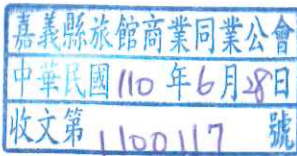 嘉義縣旅館商業同業公會
中華民國110年6月28日
收文第1100117號